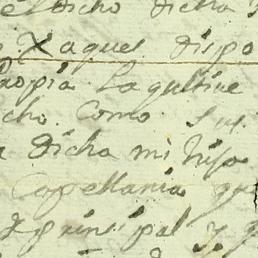 dicho dicha
Xaques dispo
propia
cho Como Su
dicha mi hija
Capellania qu
prinsipal y